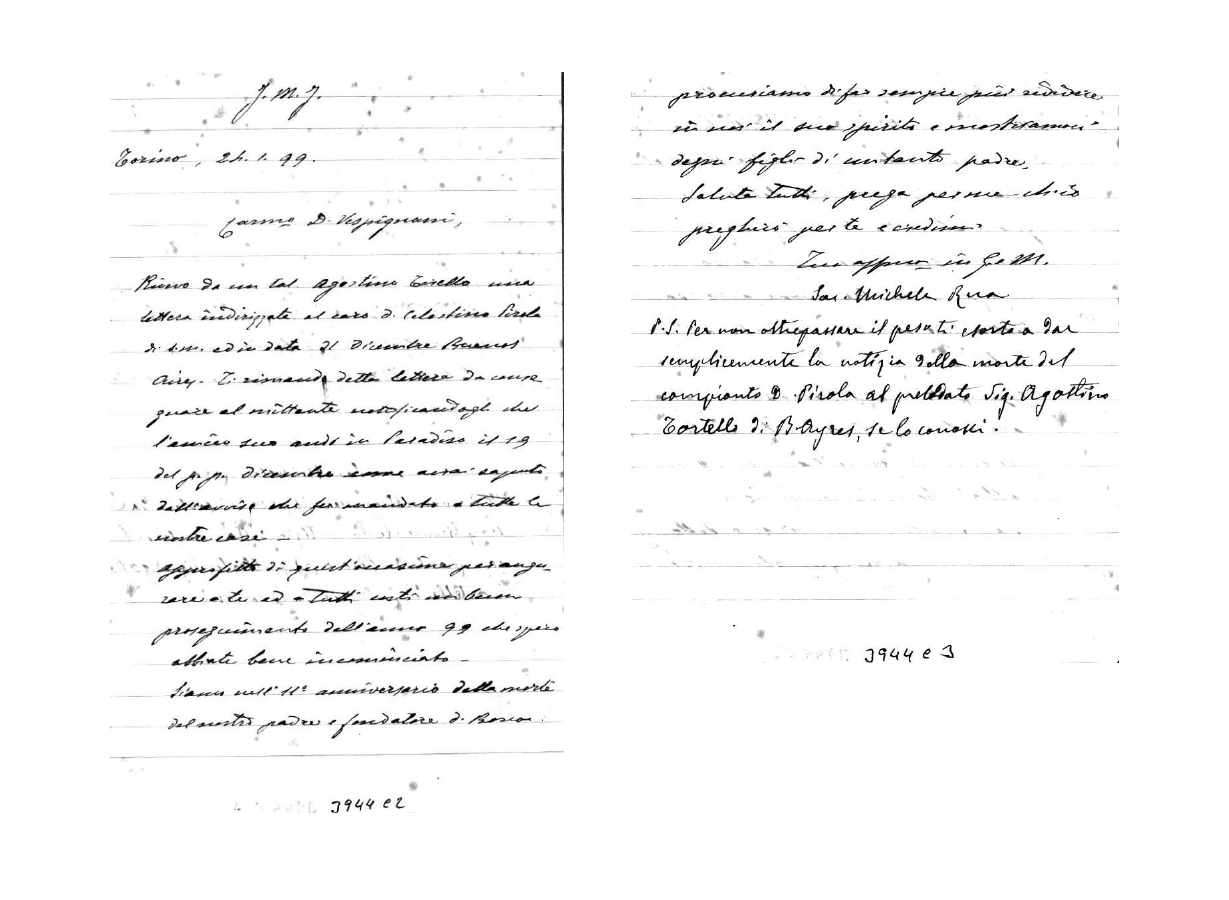 J. M. J.
Torino, 24. 1. 99.
Carmo D. Vespignani,
Ricevo da un tal Agostino Torello una
lettera indirizzata al caro d. Celestino Pirola
di s.m. ed in data 21 Dicembre Buenos
Aires. Ti rimando detta lettera da conse
gnare al mittente notificandogli che
l'amico suo andò in Paradiso il 19
del p.p. Dicembre come avrai saputo
dall'avviso che fu mandato a tutte le
nostre case –
Approfitto di quest'occasione per augu-
rare a te ed a tutti costì un buon
proseguimento dell'anno 99 che spero
abbiate bene incominciato –
Siamo nell' 11° anniversario della morte
del nostro padre e fondatore d. Bosco.
3944 e 2
procuriamo di far sempre più rivivere
in noi il suo spirito e mostriamoci
degni figli di un tanto padre.
Saluta tutti, prega per me ch'io
pregherò per te e credimi
Tuo affmo in G. e M.
Sac. Michele Rua
P.S. Per non oltrepassare il peso ti esorto a dar
semplicemente la notizia della morte del
compianto D. Pirola al prelodato Sig. Agostino
Tortello di B. Ayres, se lo conosci.
3944 e 3